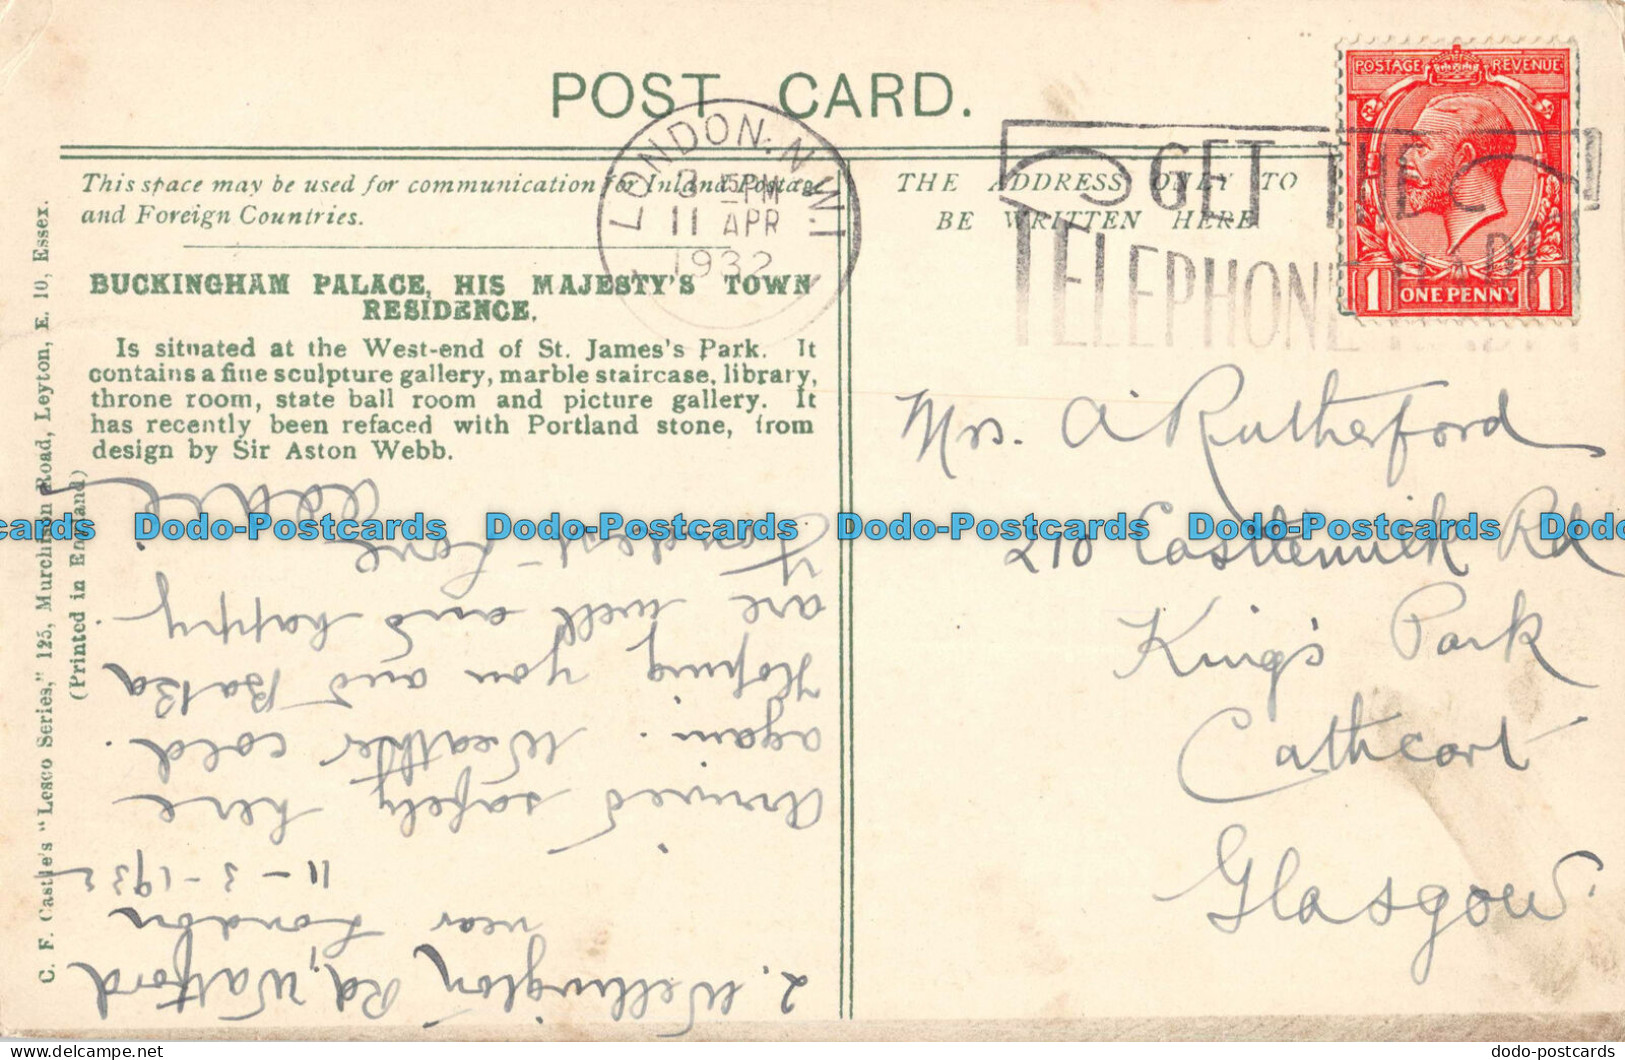 POST CARD.
This space may be used for communication for Inland Postage
and Foreign Countries.
BUCKINGHAM PALACE, HIS MAJESTY'S TOWN
RESIDENCE.
Is situated at the West-end of St. James's Park. It
contains a fine sculpture gallery, marble staircase, library,
throne room, state ball room and picture gallery. It
has recently been refaced with Portland stone, from
design by Sir Aston Webb.
C. F. Castle's "Lesco Series," 125, Murchison Road, Leyton, E. 10, Essex.
(Printed in England)
LONDON. N.W.1
PM
11 APR
1932
GET THE
TELEPHONE HABIT
POSTAGE REVENUE
1 ONE PENNY 1
THE ADDRESS ONLY TO
BE WRITTEN HERE
Mrs. A Rutherford
210 Castlemilk Rd
King's Park
Cathcart
Glasgow.
2, Wellington Rd, Watford
near London
11-3-1932
Arrived safely here
again. Weather cold.
Hoping you and
are well and happy
Fondest love
Dodo-Postcards Dodo-Postcards Dodo-Postcards Dodo-Postcards
delcampe.net
dodo-postcards